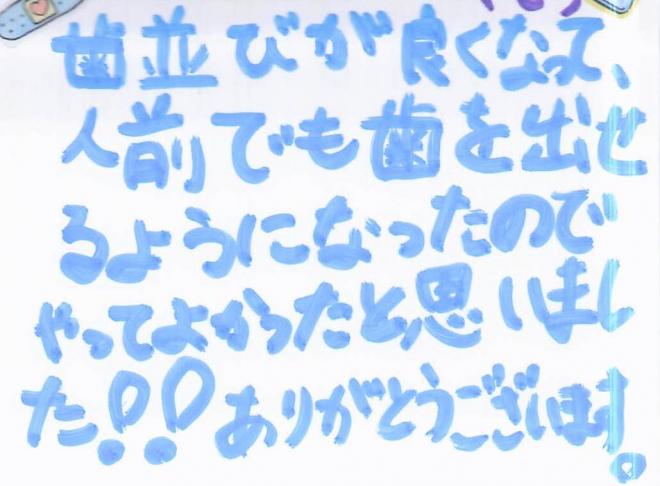 歯並びが良くなって、
人前でも歯を出せ
るようになったので
やってよかったと思いまし
た!!ありがとうございます。